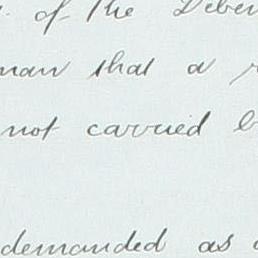 of the Deben
man that a
not carried b
demanded as a